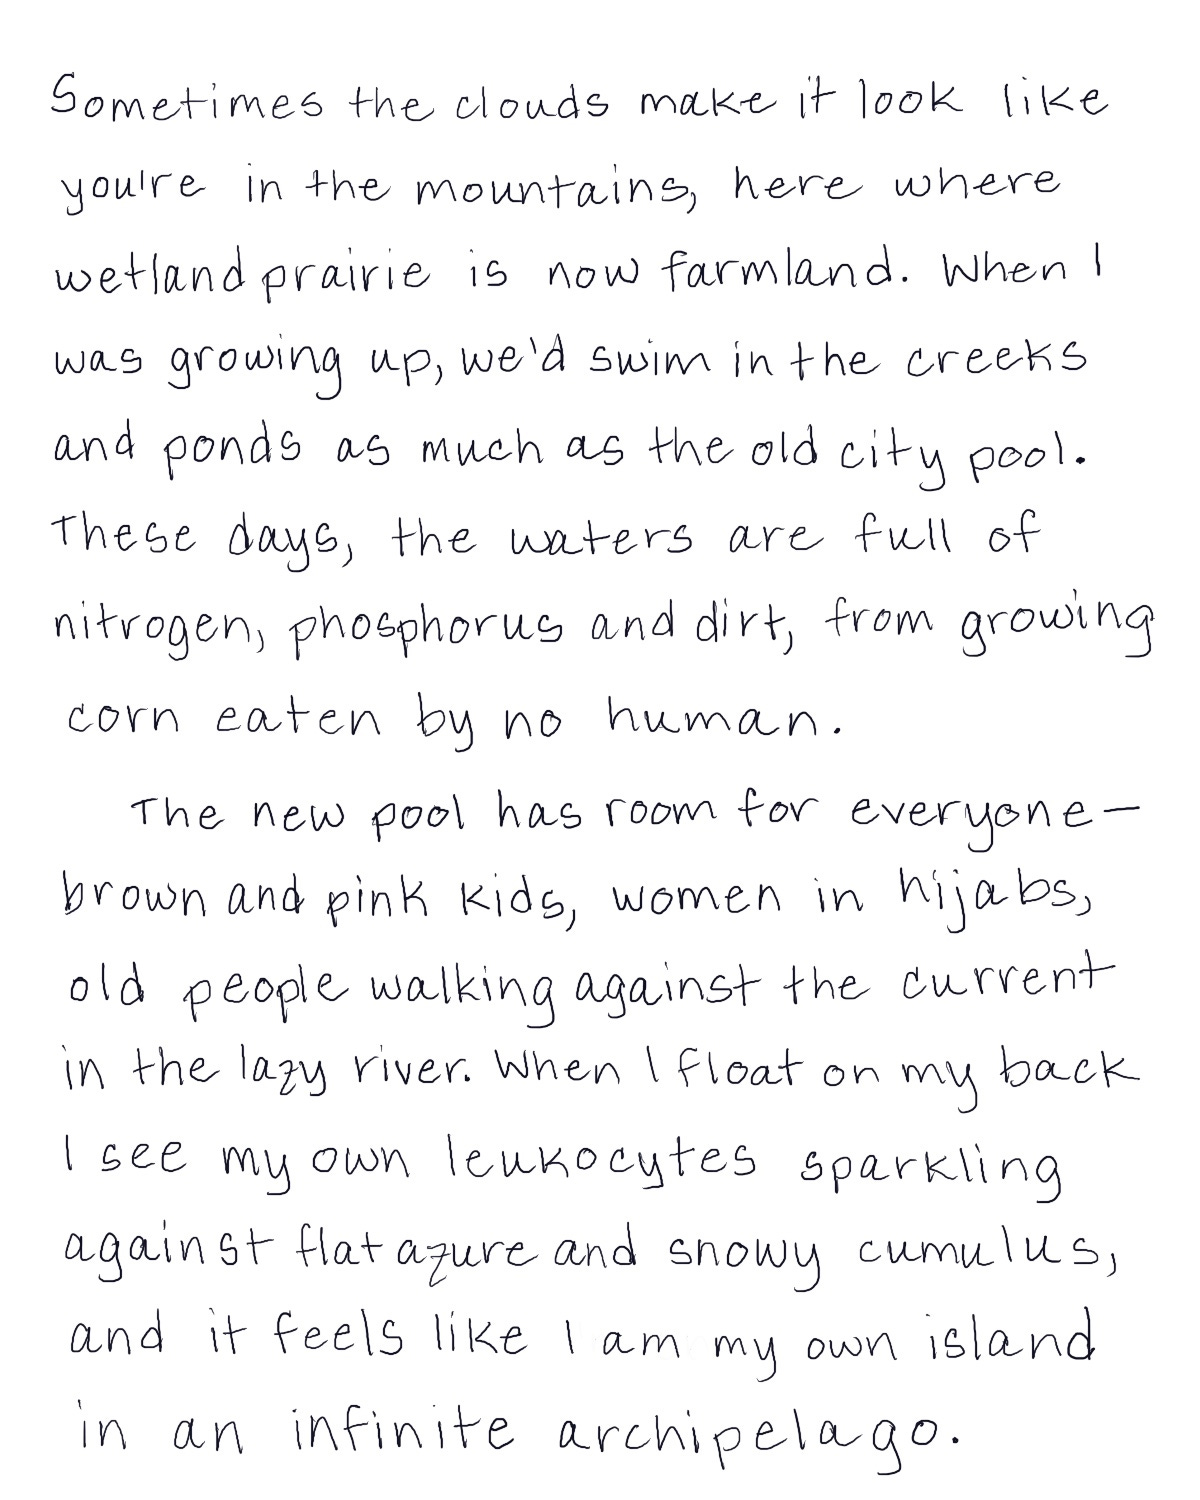 Sometimes the clouds make it look like
you're in the mountains, here where
wetland prairie is now farmland. When I
was growing up, we'd swim in the creeks
and ponds as much as the old city pool.
These days, the waters are full of
nitrogen, phosphorus and dirt, from growing
corn eaten by no human.
The new pool has room for everyone—
brown and pink kids, women in hijabs,
old people walking against the current
in the lazy river. When I float on my back
I see my own leukocytes sparkling
against flat azure and snowy cumulus,
and it feels like I am my own island
in an infinite archipelago.